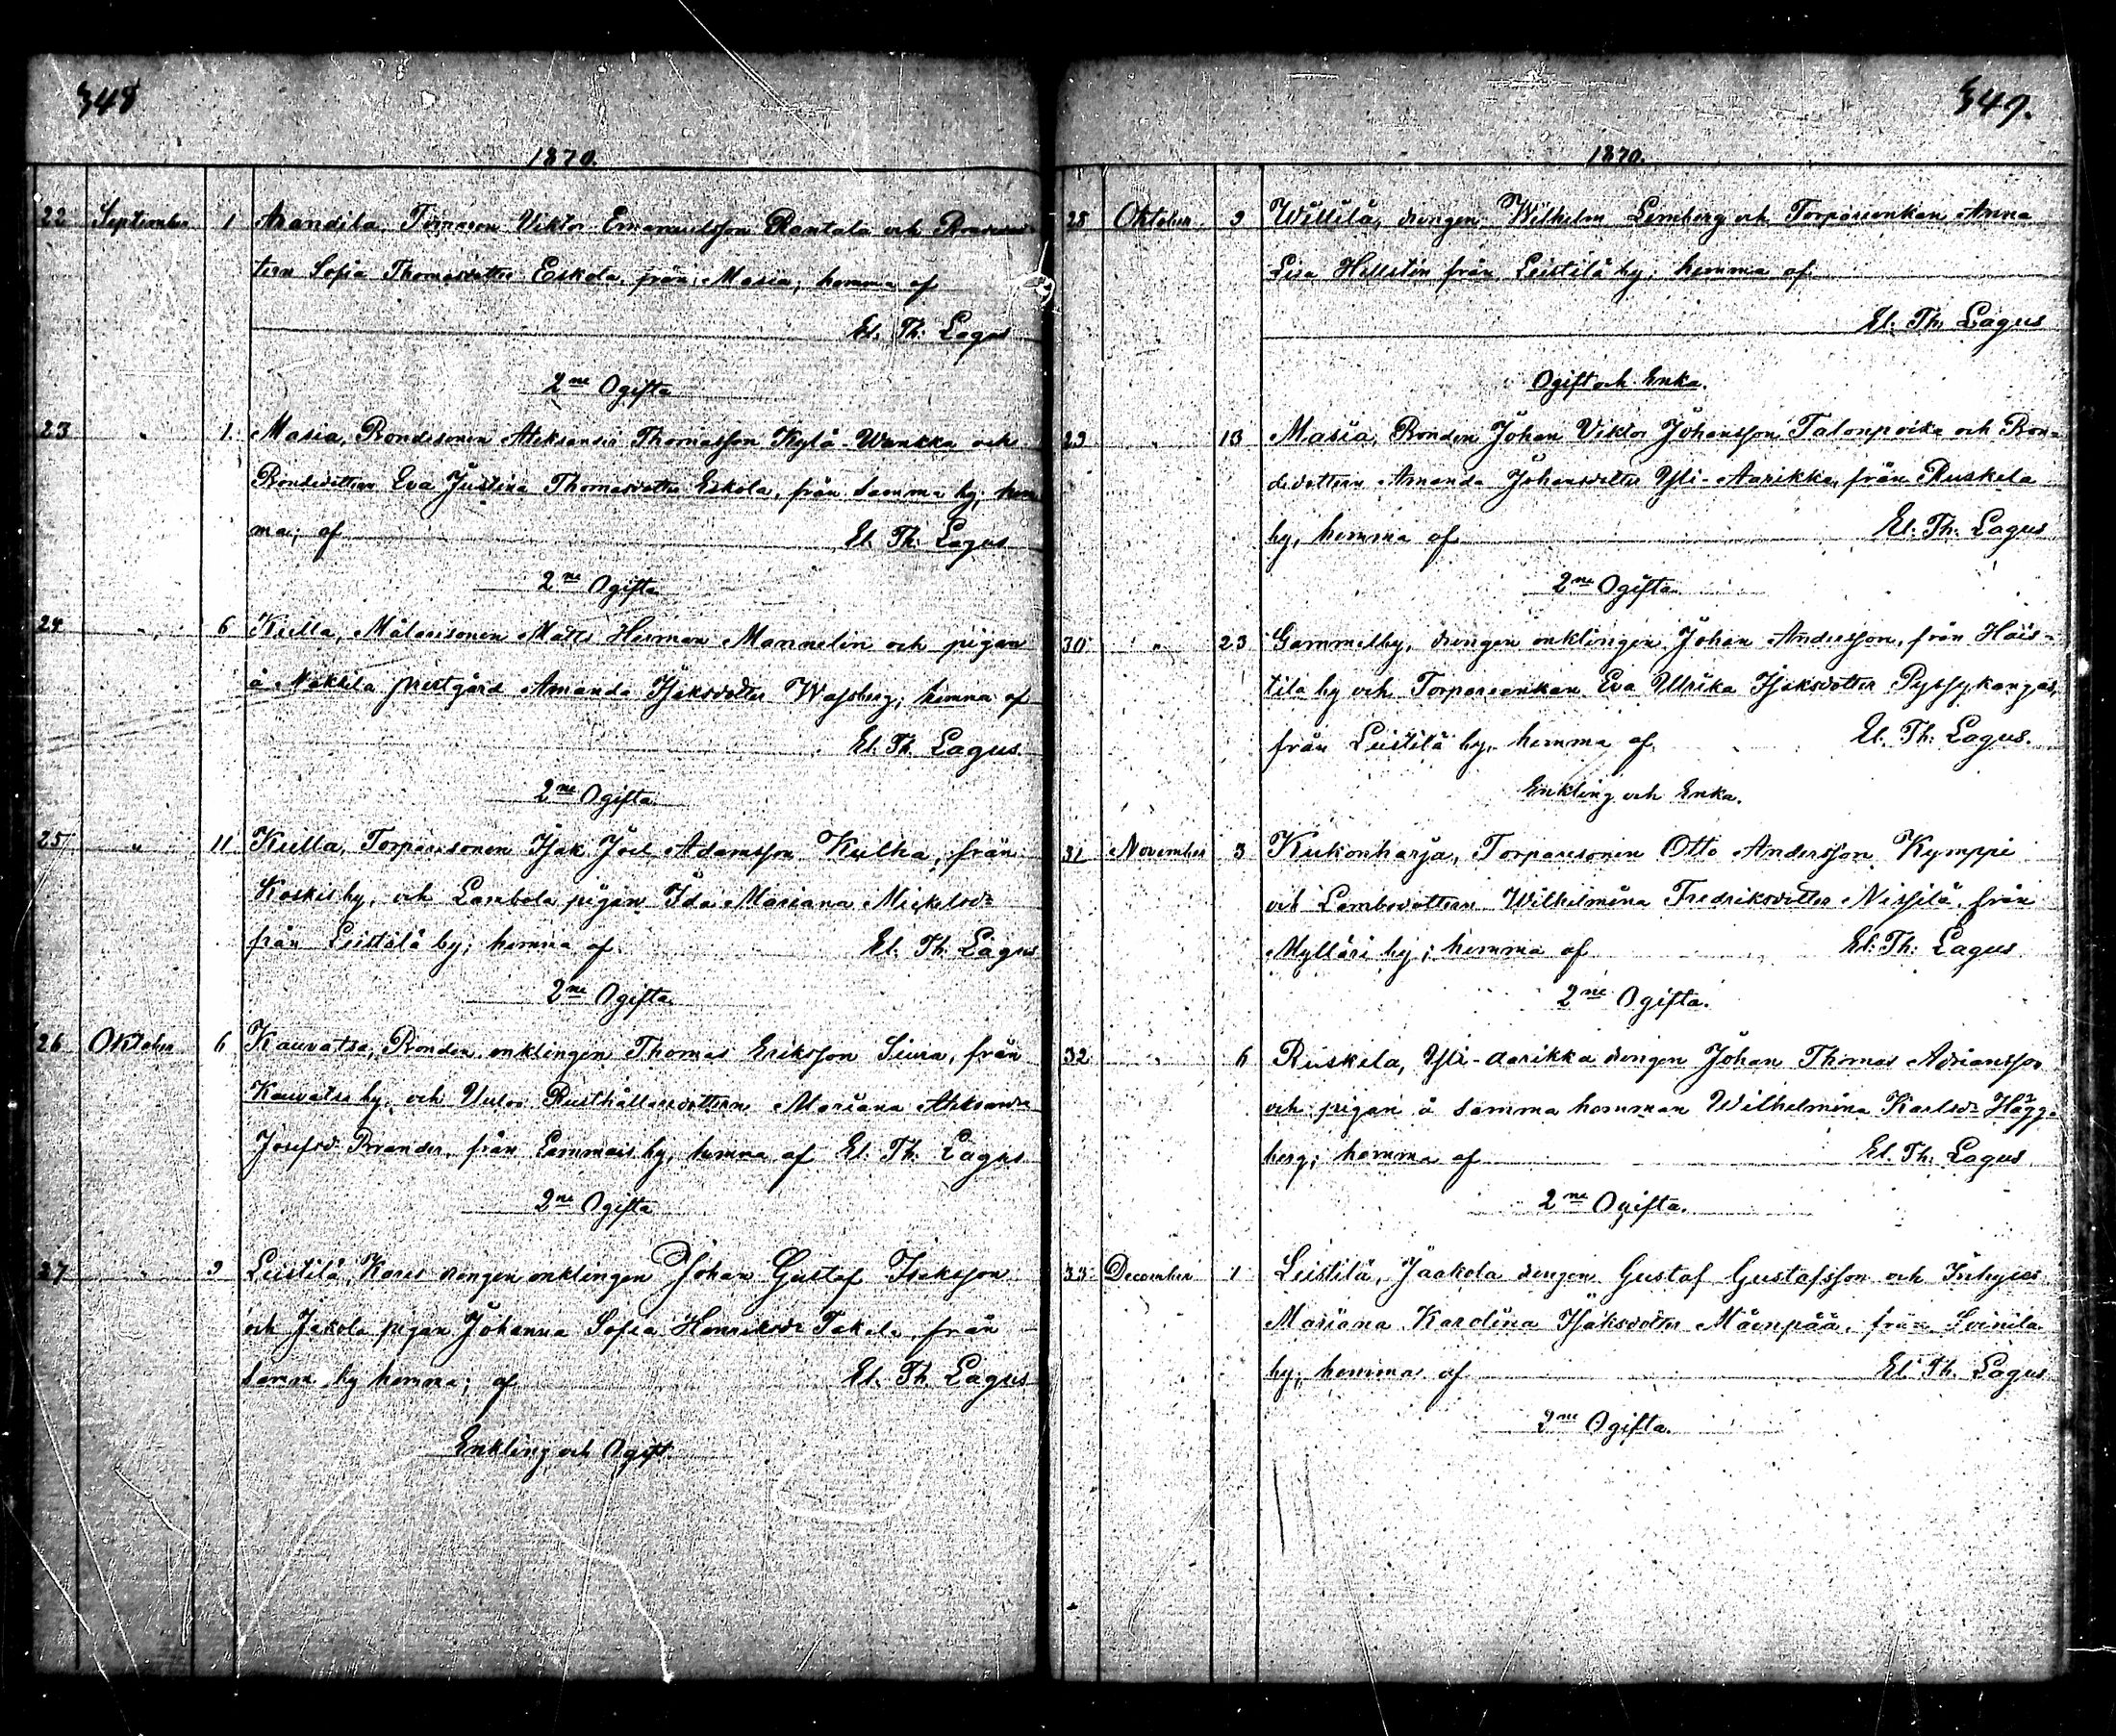 348
1870.
22 September 1 Arandila, Torparen Viktor Emanuelsson Rantala och Bondedot-
tern Sofia Thomasdotter Eskola från Masia; hemma af
El. Th. Lagus
2ne Ogifta
23 " 1. Masia, Bondesonen Aleksander Thomasson Kylä-Wankka och
Bondedottern Eva Justina Thomasdotter Eskola, från samma by, hem
ma; af El. Th. Lagus
2ne Ogifta
24 " 6 Kiella, Målaresonen Matts Herman Mannelin och pigan
å Nakkila prestgård Amanda Isaksdotter Wassberg; hemma af
El. Th. Lagus.
2ne Ogifta
25 " 11 Kiella, Torparesonen Isak Joel Adamsson Kulha, från
Koskis by, och Lambola pigan Ida Mariana Mickelsdr
från Leistilä by; hemma af El. Th. Lagus
2ne Ogifta.
26 Oktober 6 Kauvatsa, Bonden enklingen Thomas Eriksson Siura, från
Kauvatsa by, och Rusthållaredottern Mariana Aleksandra
Josefsdr Brander, från Lammais by, hemma af El. Th. Lagus
2ne Ogifta
27 " 9 Leistilä, Kares drengen enklingen Johan Gustaf Isaksson
och Jakola pigan Johanna Sofia Henriksdr Takala från
samma by hemma; af El. Th. Lagus
Enkling och Ogift.
349.
1870.
28 Oktober 9 Willilä, drengen Wilhelm Lemberg och Torpareenkan Anna
Lisa Hellstén från Leistilä by; hemma af
El. Th. Lagus
Ogift och Enka.
29 " 13 Masia, Bonden Johan Viktor Johansson Talonpoika och Bon-
dedottern Amanda Johansdotter Yli-Aarikka, från Ruskela
by, hemma af El. Th. Lagus
2ne Ogifta.
30 " 23 Gammelby, drengen enklingen Johan Andersson, från Hais-
tila by och Torpareenkan Eva Ulrika Isaksdotter Pyssykangas,
från Leistilä by, hemma af El. Th. Lagus.
Enkling och Enka.
31 November 3 Kukonharja, Torparesonen Otto Andersson Kymppi
och Lambodottern Wilhelmina Fredriksdotter Nissilä, från
Mylläri by; hemma af El. Th. Lagus
2ne Ogifta.
32 " 6 Ruskela, Yli-Aarikka drengen Johan Thomas Adriansson
och pigan å samma hemman Wilhelmina Karlsdr Hägg-
berg; hemma af El. Th. Lagus
2ne Ogifta.
33 December 1 Leistilä, Jaakola drengen Gustaf Gustafsson och Inhyses
Mariana Karolina Isaksdotter Mäenpää, från Soinila
by; hemma af El. Th. Lagus
2ne Ogifta.